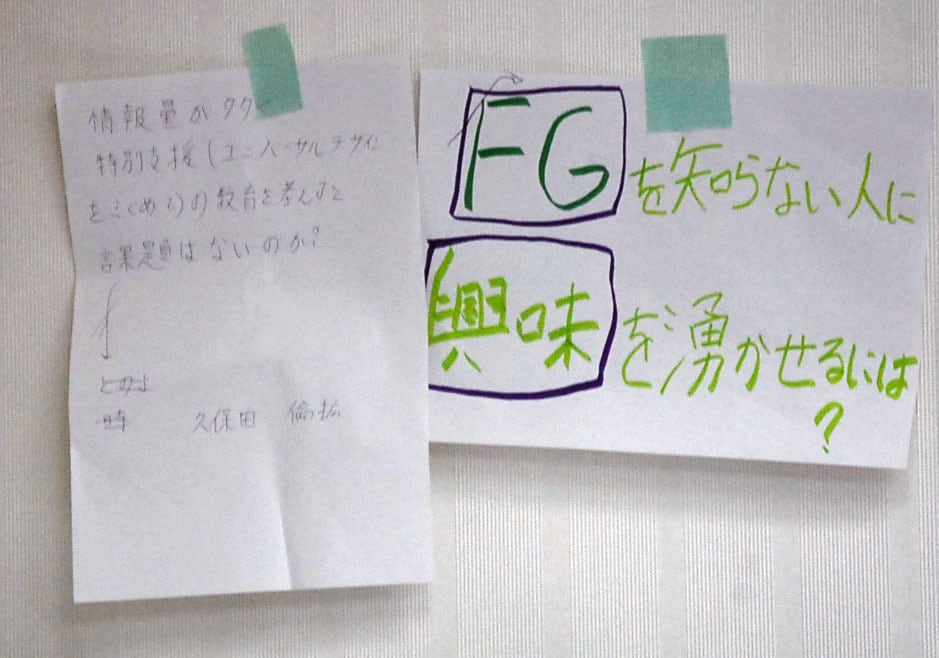 情報量が多
特別支援(ユニバーサルデザイン
をふくめて)の教育を考えると
課題はないのか?
久保田
FGを知らない人に
興味を湧かせるには
?